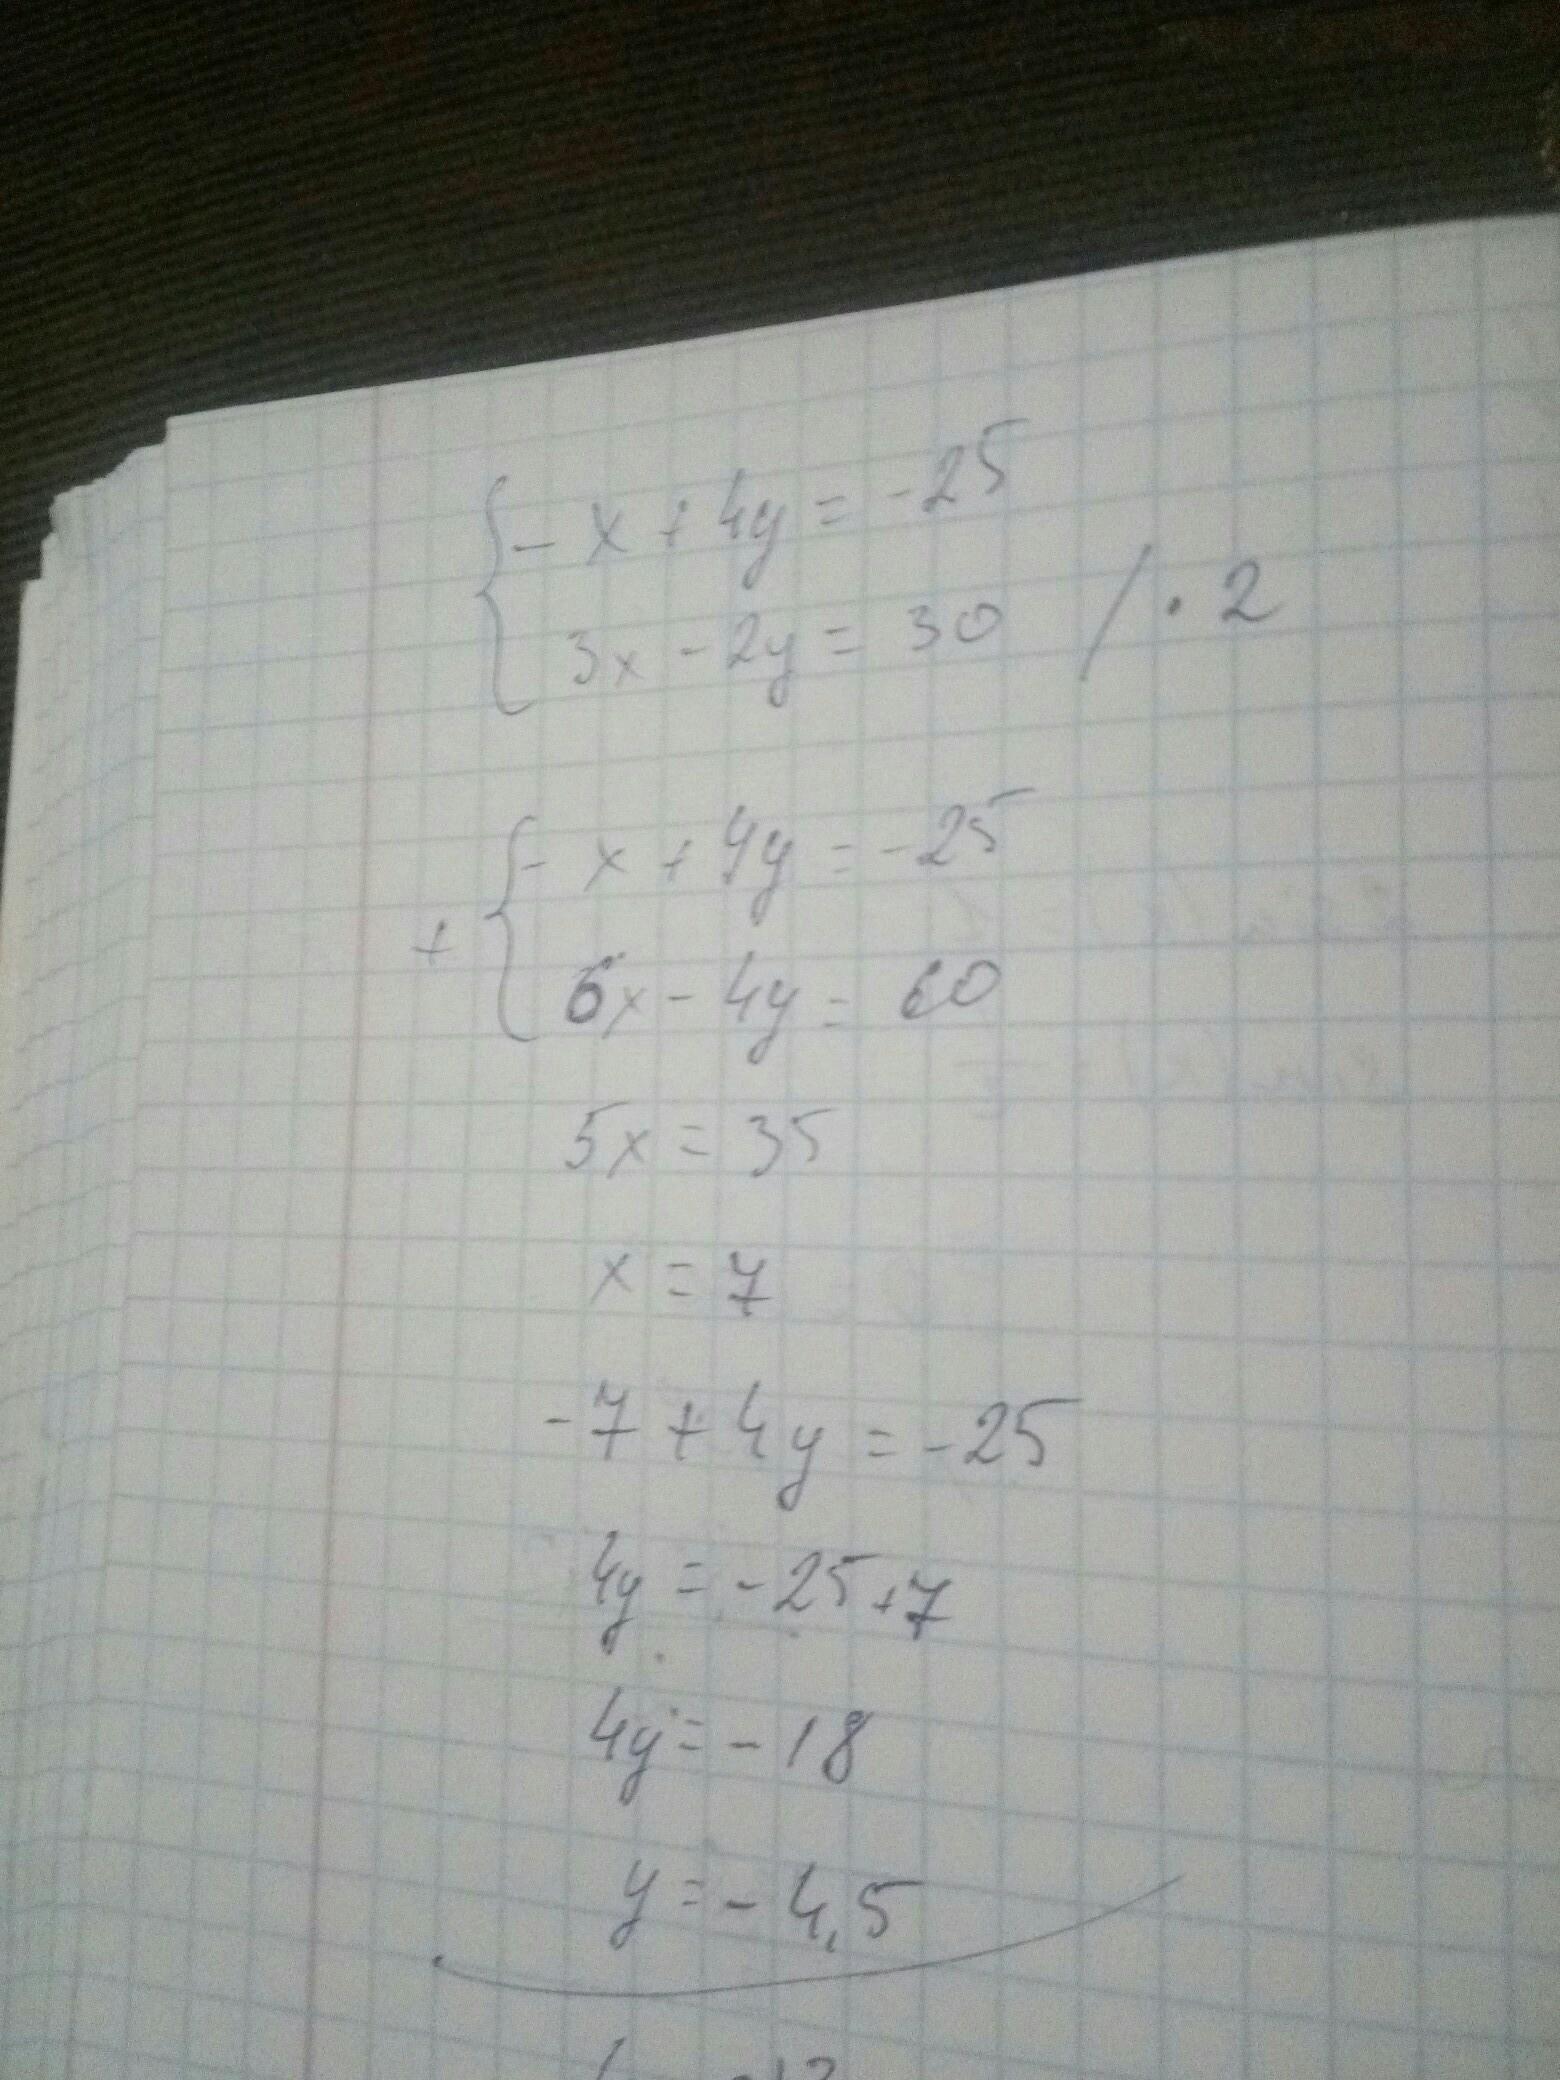 - x + 4y = -25
3x - 2y = 30 / · 2
- x + 4y = -25
+
6x - 4y = 60
5x = 35
x = 7
-7 + 4y = -25
4y = -25+7
4y = -18
y = -4,5